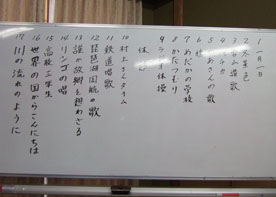 1 一月一日
2 冬景色
3 
4 
5 かあさんの歌
6 
7 めだかの学校
8 かたつむり
9 ラジオ体操
休けい
10 村上さんタイム
11 鉄道唱歌
12 琵琶湖周航の歌
13 誰か故郷を想わざる
14 リンゴの唄
15 高校三年生
16 世界の国からこんにちは
17 川の流れのように